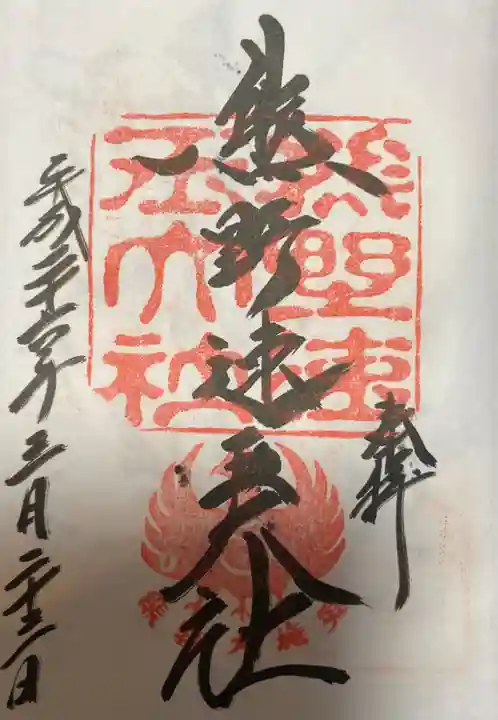 奉拝
熊野速玉大社
平成二十六年三月二十三日
熊野速
玉大社